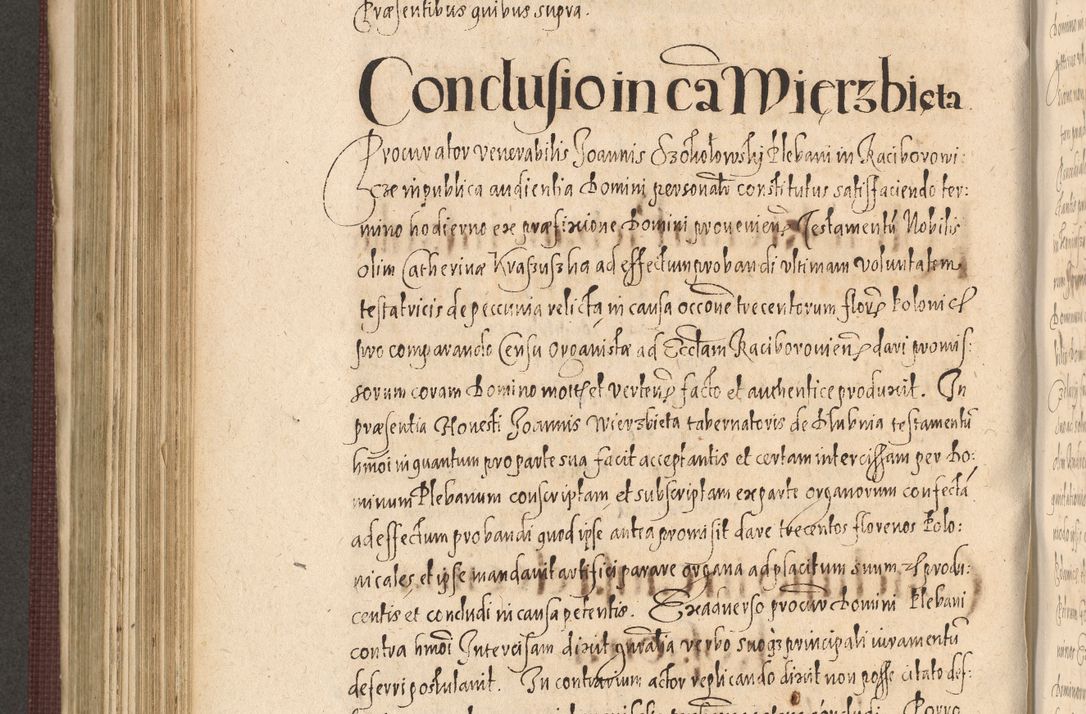 Præsentibus quibus supra.
Conclusio in cã Mierzbięta
Procurator venerabilis Joannis Szoholowski Plebani in Raciborowi:
cze in publica audientia Domini personalr constitutus satisfaciendo ter:
mino hodierno ex præfixione Domini provenien. Testamentũ Nobilis
olim Catherinæ Kraszuszka ad effectum probandi ultimam voluntatem
testatricis de peccunia relicta in causa trecentorum floror Poloniel
pro comparando Censu Organistæ ad Ecclam Raciborovien dari promis:
sorum coram Domino et verten facto et authentice produxit. In
præsentia Honesti Joannis Wierzbieta tabernatoris de Dlubnia testamentũ
hmoi in quantum pro parte sua facit acceptantis et certam intercissam per Do:
minum Plebanum conscriptam et subscriptam ex parte organorum confectã
ad effectum probandi quod ipse antea promisit dare trecentos florenos Polo:
nicales, et ipse mandavit artifici parare organa ad placitum suum et produ:
centis et concludi in causa petentis. Ex adverso procur Domini Plebani
contra hmoi Intercisam dixit gnralia verbo suoq principali iuramentũ
deferri postulavit. In contrarium actor replicando dixit non posse citato def:
concludi. Porro